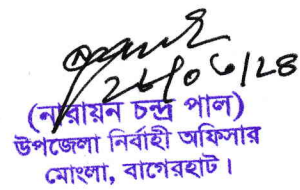 ২৬/০৬/২৪
(নারায়ন চন্দ্র পাল)
উপজেলা নির্বাহী অফিসার
মোংলা, বাগেরহাট।